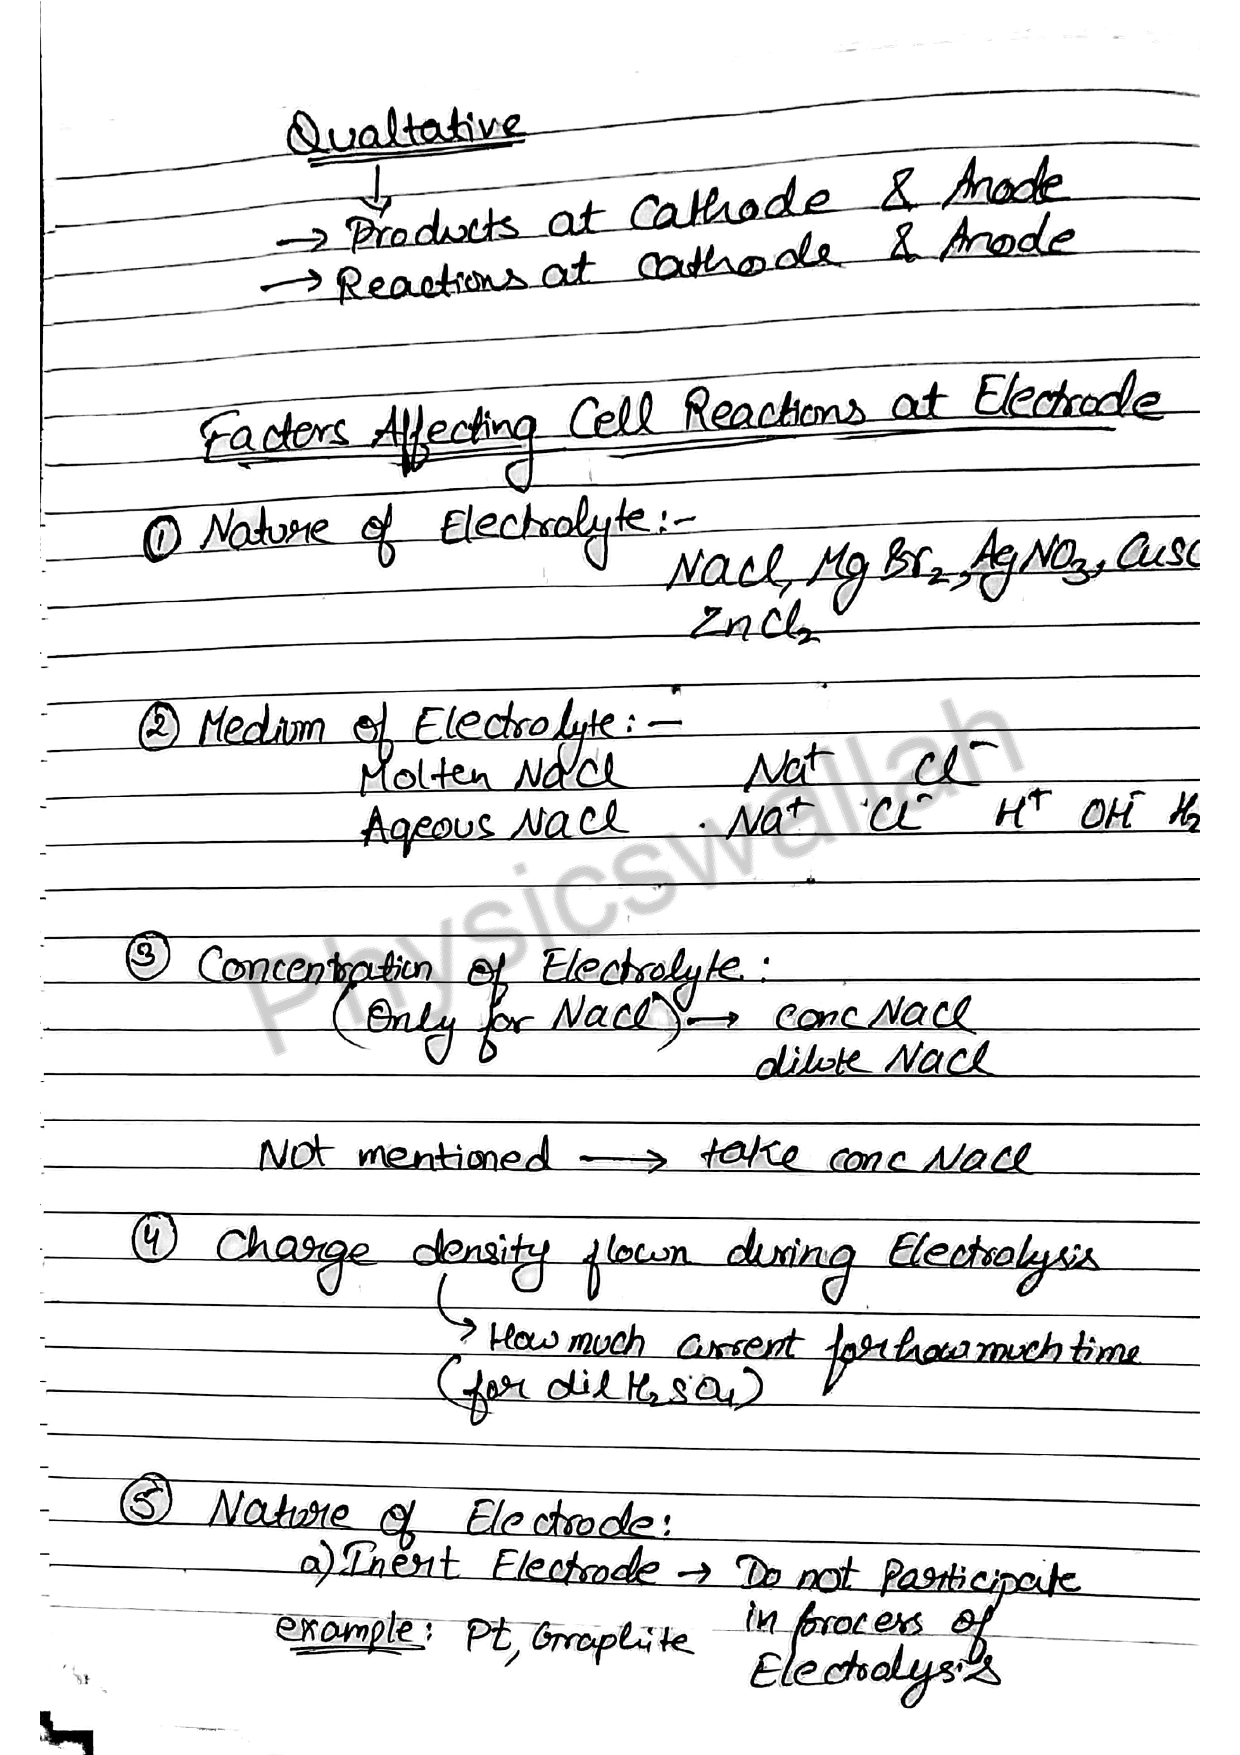 Qualtative
→ Products at Cathode & Anode
→ Reactions at cathode & Anode
Factors Affecting Cell Reactions at Electrode
① Nature of Electrolyte:-
NaCl, MgBr₂, AgNO₃, CuSO
ZnCl₂
② Medium of Electrolyte:-
Molten NaCl Na⁺ Cl⁻
Aqeous NaCl Na⁺ Cl⁻ H⁺ OH⁻ H₂
③ Concentration of Electrolyte:
(Only for NaCl) → conc NaCl
dilute NaCl
Not mentioned → take conc NaCl
④ Charge density flown during Electrolysis
→ How much current for how much time
(for dil H₂SO₄)
⑤ Nature of Electrode:
a) Inert Electrode → Do not Participate
in process of
example: Pt, Graphite
Electrolysis
Physicswallah